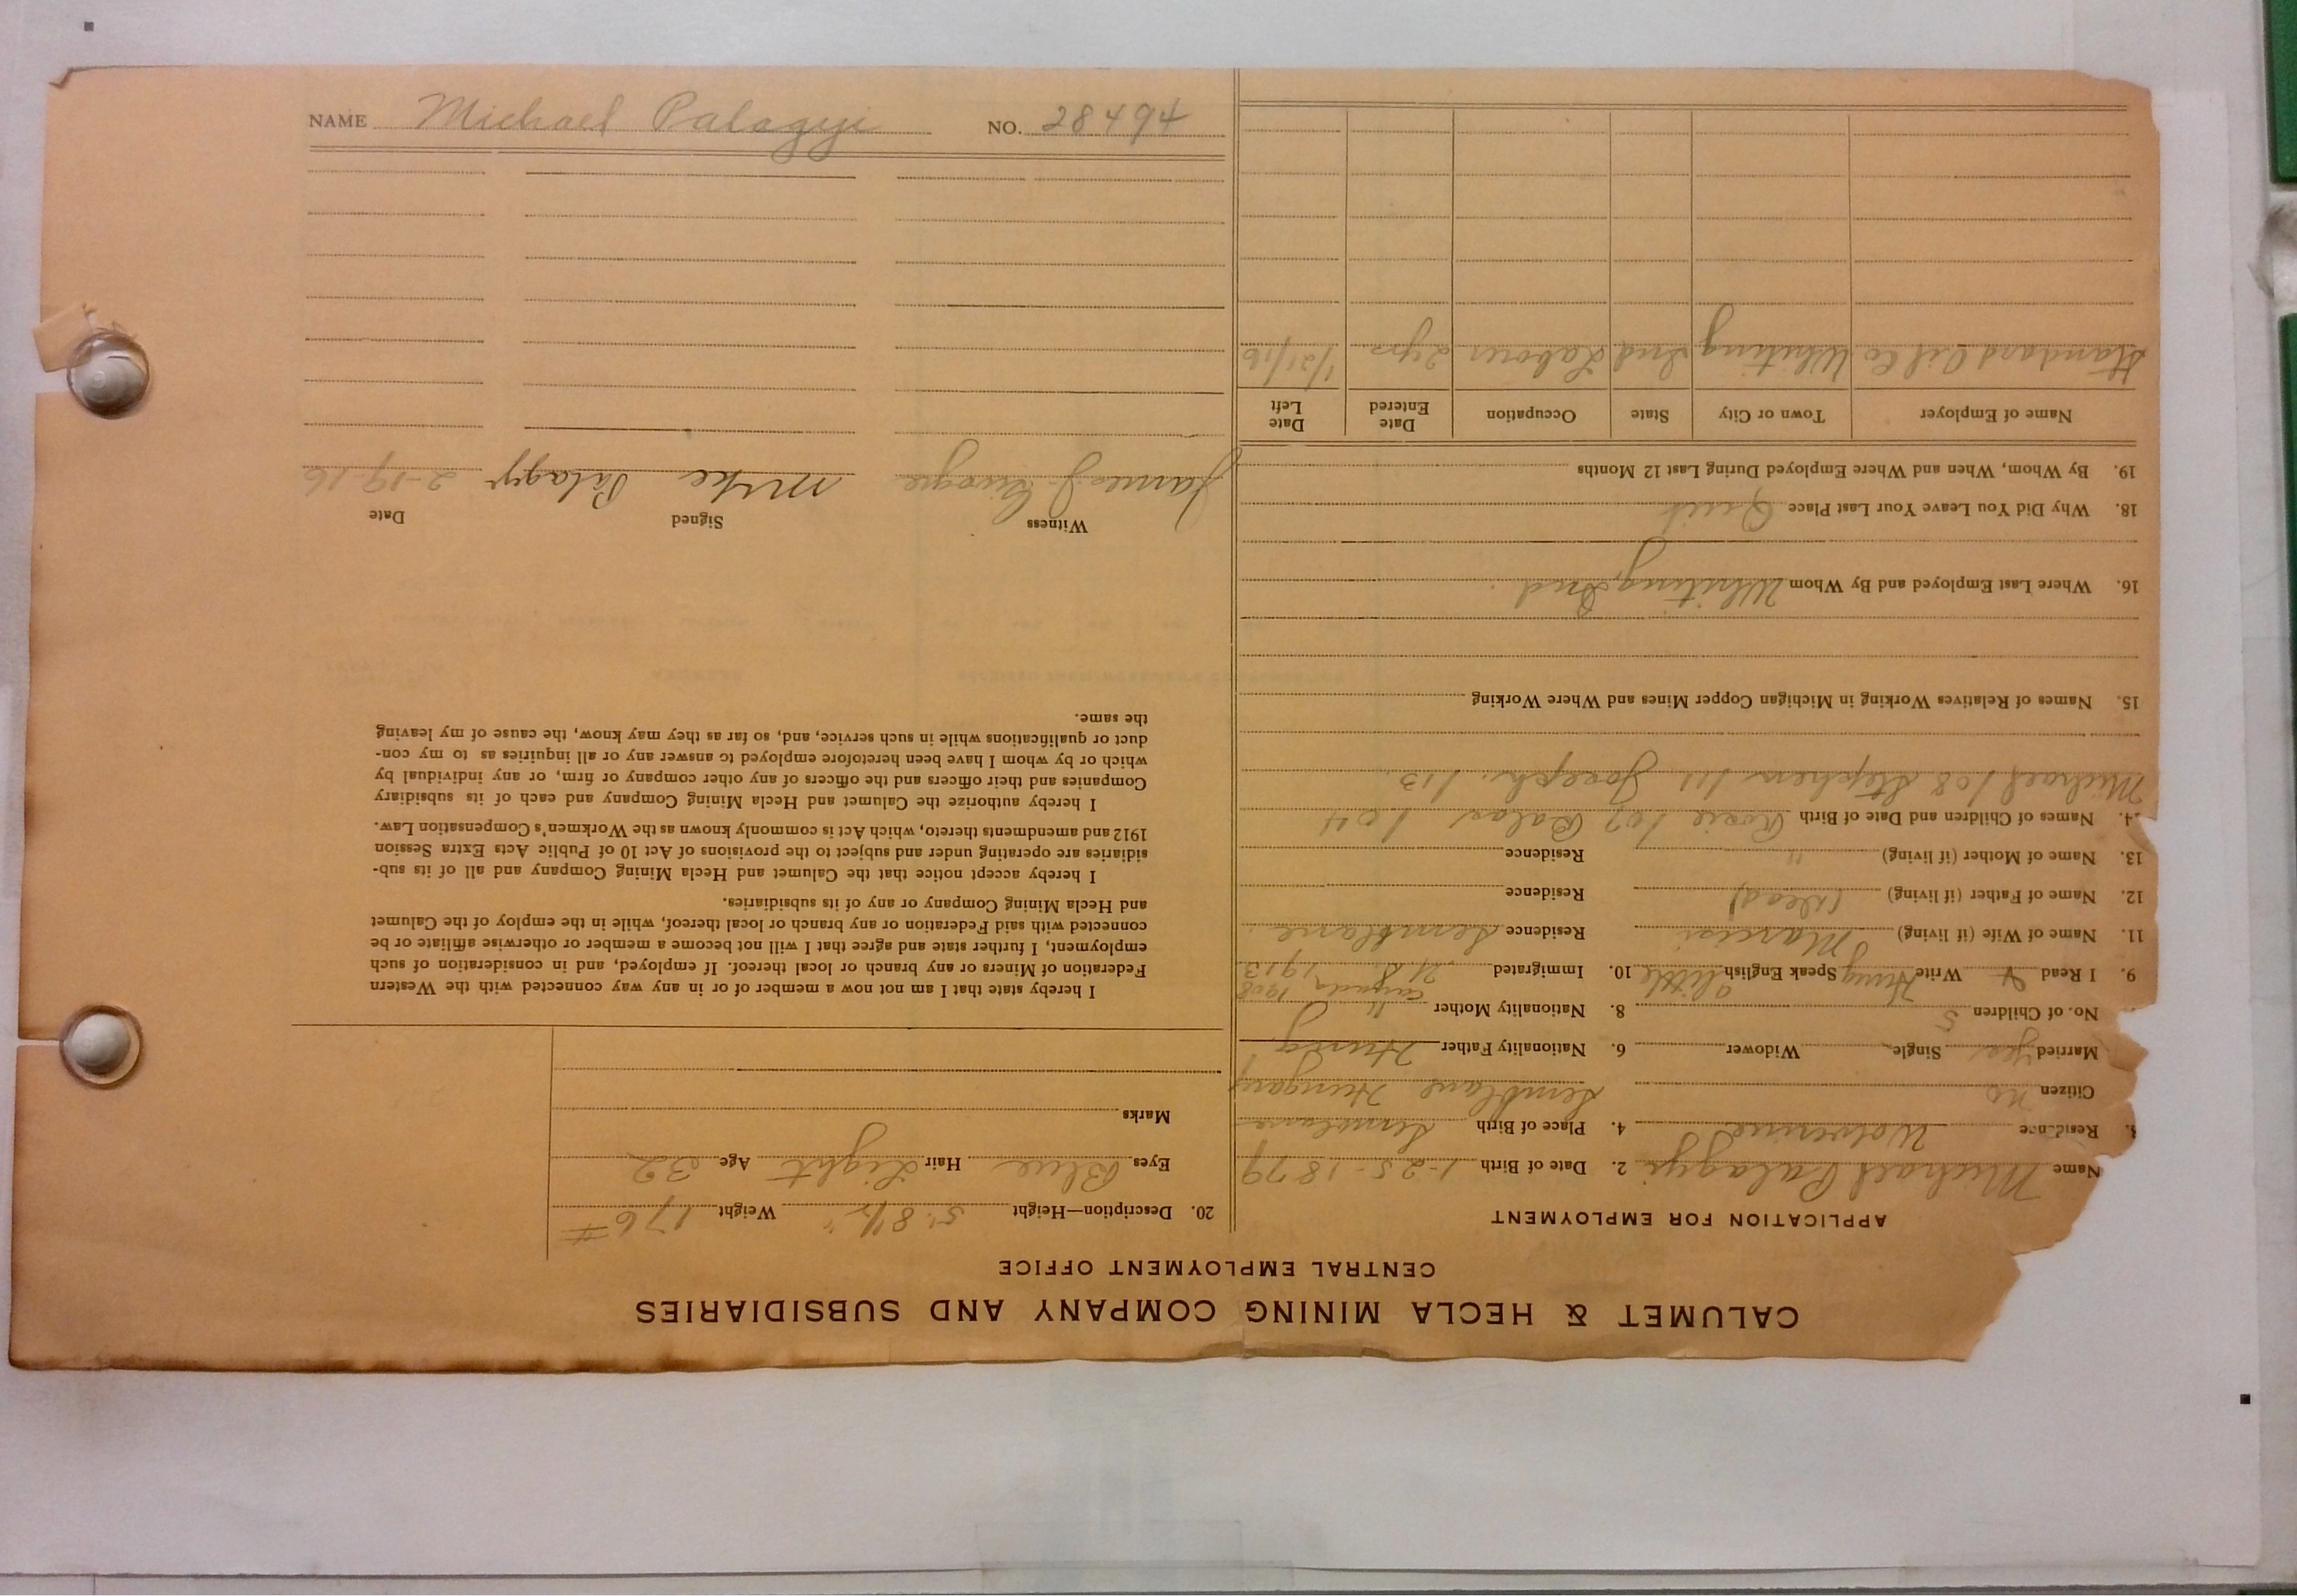 NAME Michael Palagyi NO. 28494
CALUMET & HECLA MINING COMPANY AND SUBSIDIARIES
CENTRAL EMPLOYMENT OFFICE
APPLICATION FOR EMPLOYMENT
Name Michael Palagyi 2. Date of Birth 1-25-1879
3. Residence Wolverine 4. Place of Birth Semblane
Citizen no Semblane Hungary
Married yes Single Widower 6. Nationality Father Hung
No. of Children 5 8. Nationality Mother "
Canada 1908
9. I Read & Write Hung Speak English little 10. Immigrated U.S. 1913
11. Name of Wife (if living) Residence Semblane
12. Name of Father (if living) (Dead) Residence
13. Name of Mother (if living) " Residence
4. Names of Children and Date of Birth Rosie 1907 Balas 1904
Michael 1908 Stephen 1911 Joseph 1913
15. Names of Relatives Working in Michigan Copper Mines and Where Working
16. Where Last Employed and By Whom Whiting Ind.
18. Why Did You Leave Your Last Place Quit
19. By Whom, When and Where Employed During Last 12 Months
Name of Employer Town or City State Occupation Date Entered Date Left
Standard Oil Co Whiting Ind Laborer 2 yrs 1/21/16
20. Description—Height 5' 8 1/2" Weight 176 #
Eyes Blue Hair Light Age 32
Marks
I hereby state that I am not now a member of or in any way connected with the Western
Federation of Miners or any branch or local thereof. If employed, and in consideration of such
employment, I further state and agree that I will not become a member or otherwise affiliate or be
connected with said Federation or any branch or local thereof, while in the employ of the Calumet
and Hecla Mining Company or any of its subsidiaries.
I hereby accept notice that the Calumet and Hecla Mining Company and all of its sub-
sidiaries are operating under and subject to the provisions of Act 10 of Public Acts Extra Session
1912 and amendments thereto, which Act is commonly known as the Workmen's Compensation Law.
I hereby authorize the Calumet and Hecla Mining Company and each of its subsidiary
Companies and their officers and the officers of any other company or firm, or any individual by
which or by whom I have been heretofore employed to answer any or all inquiries as to my con-
duct or qualifications while in such service, and, so far as they may know, the cause of my leaving
the same.
Witness Signed Date
James J. Mike Palagyi 2-19-16